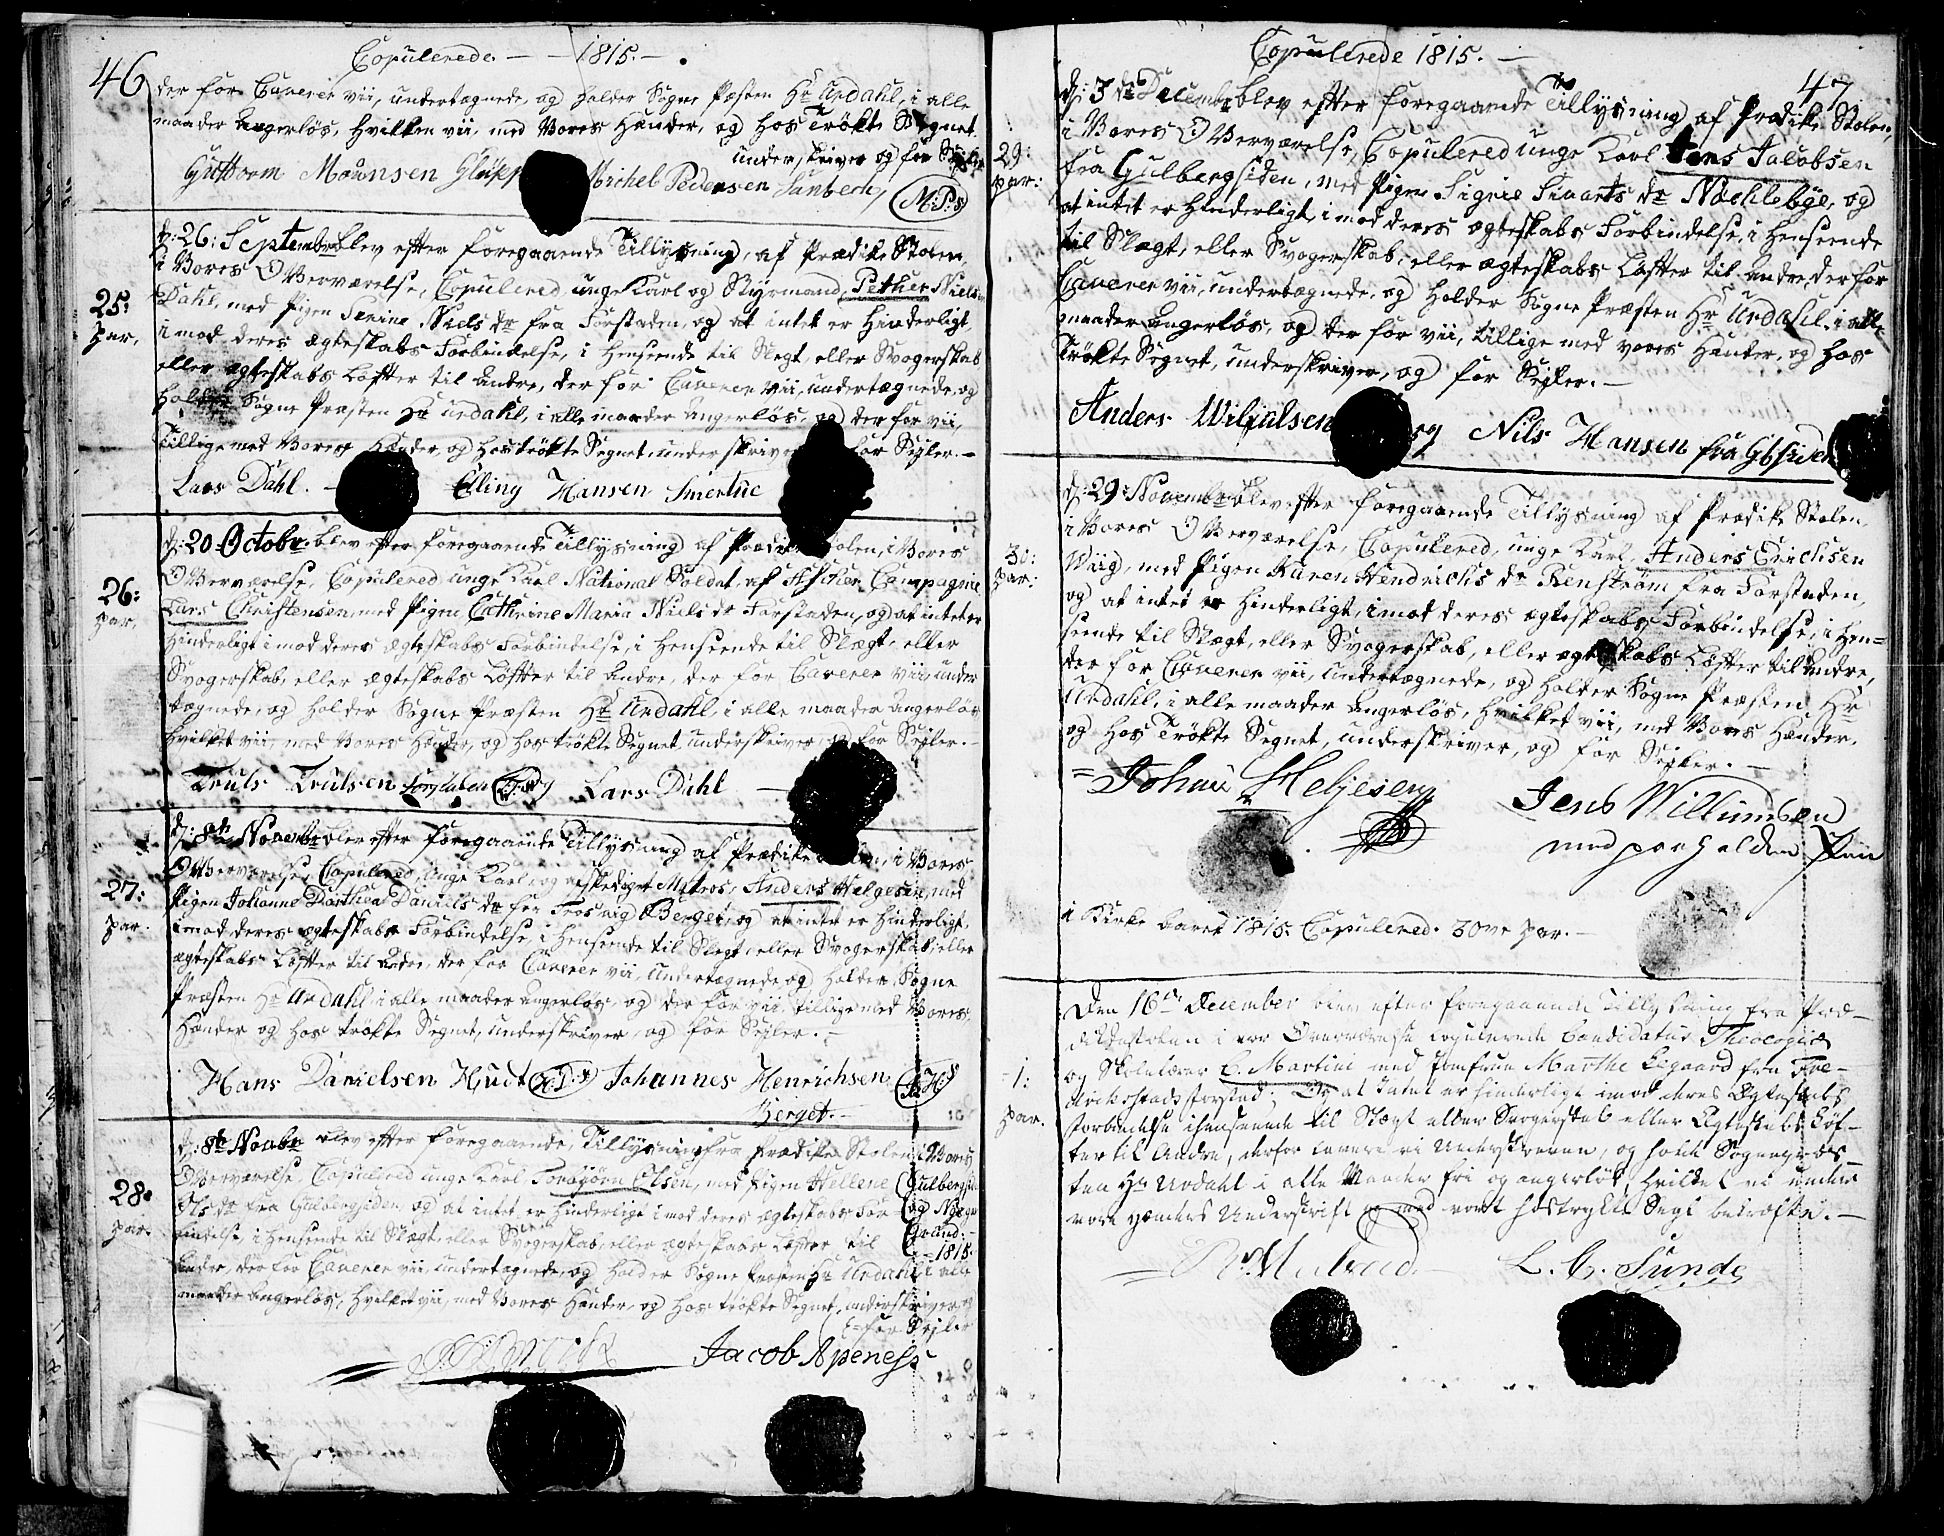 46
Copulerede. — 1815. —
der for Caverer vii, undertægnede, og holder Sogne Præsten Hr Urdahl, i alle
maader angerløs, hvilken vii, med Vores Hænder, og hos trökte Segnet
underskriver og for Sejler
Guttorm Mounsen Glüpp Michel Pedersen Sunbech, M:P:S
25:
par.
d: 26: Septembr blev efter foregaaende Tillysning, af Prædike Stolen,
i Vores Overværelse, Copulered unge Karl og Styrmand, Pether Nielsen
Dahl, med Pigen Serine Niels dr fra Forstaden, og at intet er Hinderligt
i mod deres Ægteskabs Forbindelse, i Henseende til Slegt, eller Svogerskab
eller Ægteskabs Løfter til Andre, der for Caverer vii, undertægnede, og
holder Sogne Præsten Hr Urdahl, i alle maader angerløs, og der for vii,
Tillige med Vores Hænder, og hos trökte Segnet, underskriver for Sejler. —
Lars Dahl. — Elling Hansen Smertue
26:
par.
d: 20 Octobr blev efter foregaaende Tillysning af Prædike Stolen, i Vores
Overværelse, Copulered unge Karl National Soldat, af Campagnie
Lars Christensen, med Pigen Cathrine Maria Niels dr Forstaden, og at intet er
Hinderligt i mod deres Ægteskabs Forbindelse, i Henseende til Slægt, eller
Svogerskab, eller Ægteskabs Løfter til Andre, der for Caverer vii, under
tægnede, og holder Sogne Præsten Hr Urdahl, i alle maader angerløs
hvilket vii, med Vores Hænder, og hos trökte Segnet, underskriver, og for Sejler. —
Truls Trulsen Lars Dahl —
27:
par.
d: 8de Novembr blev efter foregaaende Tillysning af Prædike Stolen, i Vores
Overværelse, Copulered, unge Karl og afskediget Matros, Anders Helgesen, med
Pigen Johanne Dorthea Daniels dr fra Trosvig Berget, og at intet er Hinderligt,
i mod deres Ægteskabs Forbindelse, i Henseende til Slægt, eller Svogerskab, eller
Ægteskabs Løfter til Andre, der for Caverer vii, undertægnede og holder Sogne
Præsten Hr Urdahl i alle maader angerløs og der for vii, tillige med Vores,
Hænder og hos trökte Segnet, underskriver, og for Sejler. —
Hans Danielsen Hudt H:D:S Johannes Henrichsen J:H:S
Berget. —
28:
par.
d: 8de Novbr blev efter foregaaende, Tillysning fra Prædike Stolen, i Vores
Overværelse, Copulered unge Karl, Torbjørn Olsen, med Pigen Hellene
Ols dr fra Gulbergsiden, og at intet er Hinderligt i mod deres Ægteskabs For
bindelse, i Henseende til Slægt, eller Svogerskab, eller Ægteskabs Løfter til
Andre, der for Caverer vii, undertægnede, og holder Sogne Præsten Hr Urdahl, i alle
maader angerløs, hvilket vii, med Vores Hænder, og hos trökte Segnet, underskriver og
for Sejler
Gulbergsid
og Nygr
Grund: —
1815.
Jacob Apeness
Copulerede 1815. —
47
29:
par:
d: 3de Decembr blev efter foregaaende Tillysning af Prædike Stolen,
i Vores Overværelse, Copulered unge Karl Jens Jacobsen
fra Gulbergsiden, med Pigen Signie Sivarts dr Nöchlebye, og
at intet er Hinderligt, i mod deres Ægteskabs Forbindelse, i Henseende
til Slægt, eller Svogerskab, eller Ægteskabs Løfter til Andre, der for
Caverer vii, undertægnede, og holder Sogne Præsten Hr Urdahl, i alle
maader angerløs, og der for vii, tillige med vores Hænder, og hos
trökte Segnet, underskriver, og for Sejler. —
Anders Nils Hansen fra Gbsiden
30:
par:
d: 29: Novembr blev efter foregaaende Tillysning af Prædike Stolen,
i Vores Overværelse, Copulered, unge Karl, Anders Erichsen
Wiig, med Pigen Karen Hendrichs dr Renström fra Forstaden,
og at intet er Hinderligt, i mod deres Ægteskabs Forbindelse, i Hen=
seende til Slægt, eller Svogerskab, eller Ægteskabs Løfter til Andre,
der for Caverer vii, undertægnede, og holder Sogne Præsten Hr
Urdahl, i alle maader angerløs, hvilket vii, med Vores Hænder,
og hos Trökte Segnet, underskriver, og for Sejler. —
Johan Heljesen
Jens Willumsen
med paaholden Pen
i Kirke Aaret 1815. Copulered. 30ve par. —
1:
par.
Den 16de December blev efter foregaaende Tillysning fra Præ–
dikestolen i vor Overværelse copulerede Candidatus Theologiæ
og Skolelærer C. Martini med Jomfrue Marthe Elgaard fra Fre–
derikstads forstad; Og at Intet er hinderligt imod deres Ægteskabs
forbindelse i henseende til Slægt eller Svogerskab eller Egteskabs Löf–
ter til Andre, derfor cavere vi Underskrevne, og holde Sognepræs–
ten Hr Urdahl i alle Maader fri og angerløs, hvilket vi under
vore Hænders Underskrift og med vort hostrykte Segl bekræfte. —
L. C. Sunde